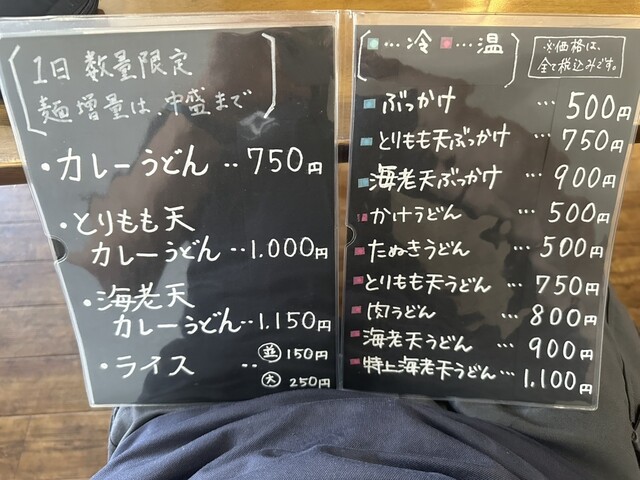 1日 数量限定
麺増量は、中盛まで
・カレーうどん ‥ 750円
・とりもも天
カレーうどん ‥ 1.000円
・海老天
カレーうどん ‥ 1.150円
・ライス ‥ 並 150円
大 250円
…冷 …温
※価格は、
全て税込みです。
ぶっかけ … 500円
とりもも天ぶっかけ … 750円
海老天ぶっかけ … 900円
かけうどん … 500円
たぬきうどん … 500円
とりもも天うどん … 750円
肉うどん … 800円
海老天うどん … 900円
特上海老天うどん … 1.100円